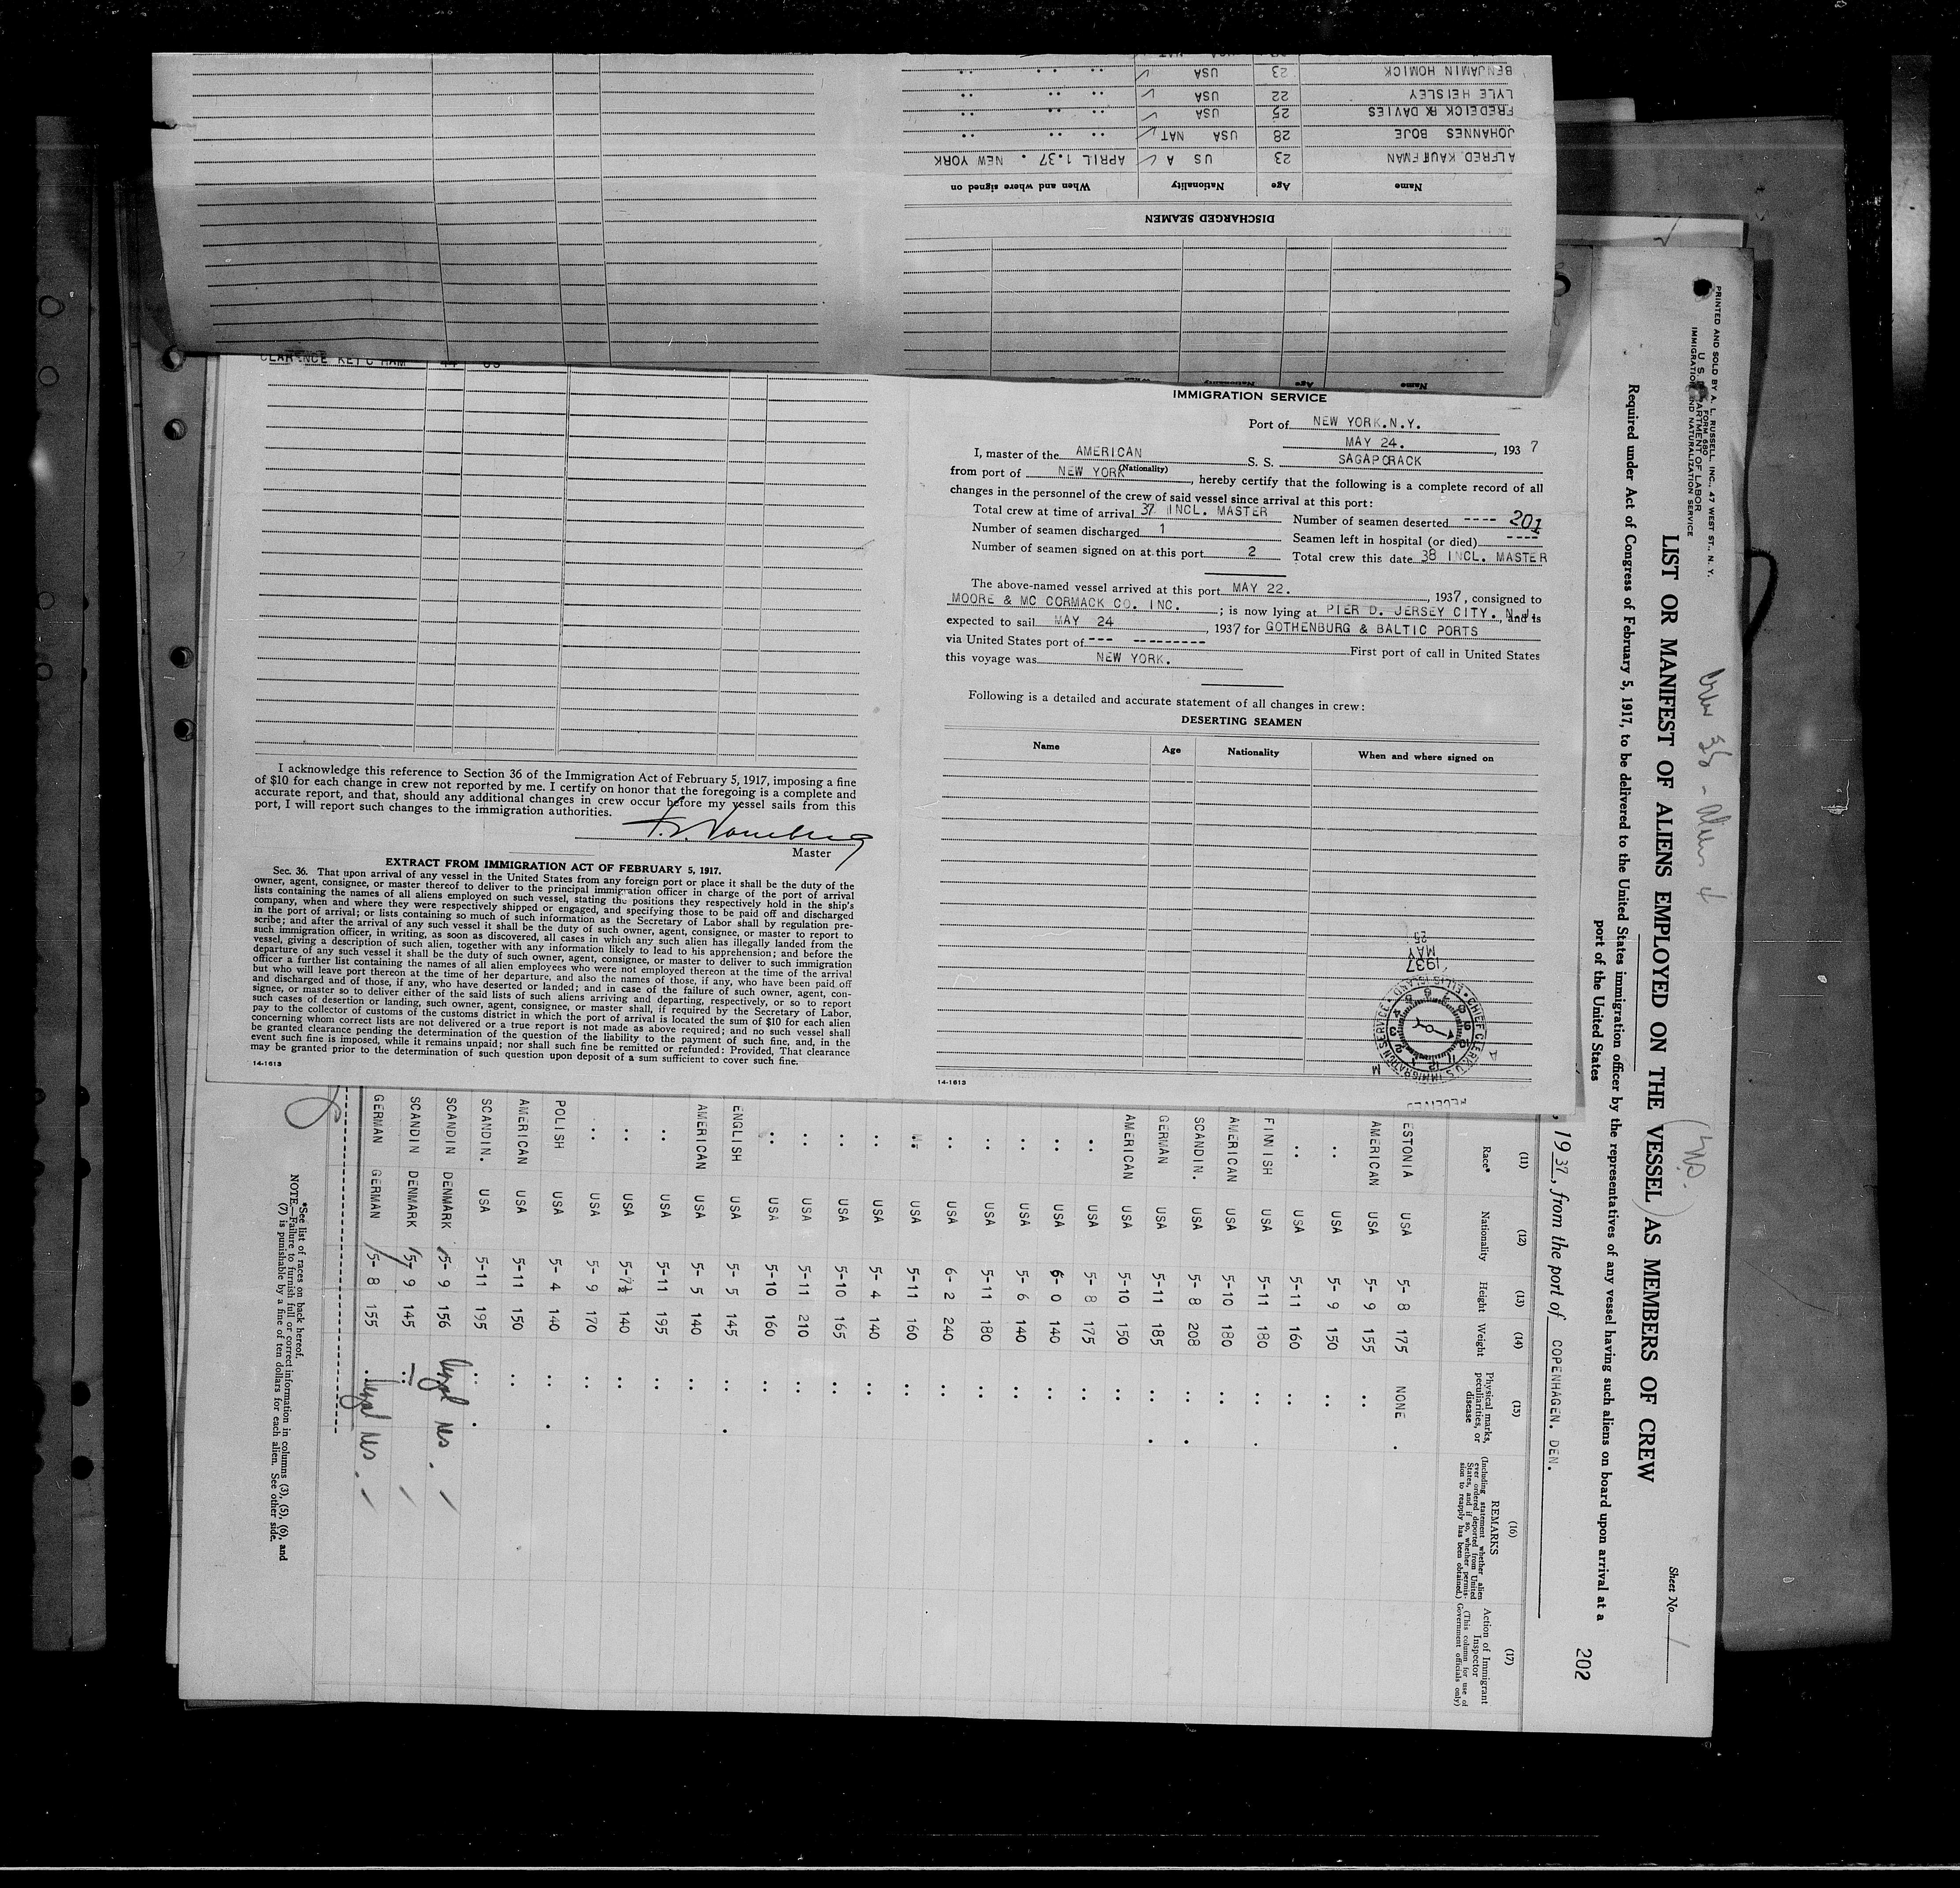 BENJAMIN HOMICK 23 USA ✓ .. .. ..
LYLE HEISLEY 22 USA .. .. ..
FREDEICK R DAVIES 25 USA ✓ .. .. ..
JOHANNES BOJE 28 USA NAT ✓ .. .. ..
ALFRED KAUFFMAN 23 US A ✓ APRIL 1.37. NEW YORK
Name Age Nationality When and where signed on
DISCHARGED SEAMEN
Name Age Nationality
CLARENCE KETCHAM 44
IMMIGRATION SERVICE
Port of NEW YORK.N.Y.
MAY 24. , 1937
I, master of the AMERICAN S. S. SAGAPORACK
(Nationality)
from port of NEW YORK , hereby certify that the following is a complete record of all
changes in the personnel of the crew of said vessel since arrival at this port:
Total crew at time of arrival 37 INCL. MASTER Number of seamen deserted ---- 201
Number of seamen discharged 1 Seamen left in hospital (or died) ----
Number of seamen signed on at this port 2 Total crew this date 38 INCL. MASTER
The above-named vessel arrived at this port MAY 22. , 1937, consigned to
MOORE & MC CORMACK CO. INC. ; is now lying at PIER D. JERSEY CITY. N.J., and is
expected to sail MAY 24 , 1937 for GOTHENBURG & BALTIC PORTS
via United States port of --- --------- First port of call in United States
this voyage was NEW YORK.
Following is a detailed and accurate statement of all changes in crew:
DESERTING SEAMEN
Name Age Nationality When and where signed on
MAY
1937
CHIEF CLERK U.S. IMMIGRATION SERVICE ELLIS ISLAND
RECEIVED
14-1613
I acknowledge this reference to Section 36 of the Immigration Act of February 5, 1917, imposing a fine
of $10 for each change in crew not reported by me. I certify on honor that the foregoing is a complete and
accurate report, and that, should any additional changes in crew occur before my vessel sails from this
port, I will report such changes to the immigration authorities.
Master
EXTRACT FROM IMMIGRATION ACT OF FEBRUARY 5, 1917.
Sec. 36. That upon arrival of any vessel in the United States from any foreign port or place it shall be the duty of the
owner, agent, consignee, or master thereof to deliver to the principal immigration officer in charge of the port of arrival
lists containing the names of all aliens employed on such vessel, stating the positions they respectively hold in the ship's
company, when and where they were respectively shipped or engaged, and specifying those to be paid off and discharged
in the port of arrival; or lists containing so much of such information as the Secretary of Labor shall by regulation pre-
scribe; and after the arrival of any such vessel it shall be the duty of such owner, agent, consignee, or master to report to
such immigration officer, in writing, as soon as discovered, all cases in which any such alien has illegally landed from the
vessel, giving a description of such alien, together with any information likely to lead to his apprehension; and before the
departure of any such vessel it shall be the duty of such owner, agent, consignee, or master to deliver to such immigration
officer a further list containing the names of all alien employees who were not employed thereon at the time of the arrival
but who will leave port thereon at the time of her departure, and also the names of those, if any, who have been paid off
and discharged and of those, if any, who have deserted or landed; and in case of the failure of such owner, agent, con-
signee, or master so to deliver either of the said lists of such aliens arriving and departing, respectively, or so to report
such cases of desertion or landing, such owner, agent, consignee, or master, shall, if required by the Secretary of Labor,
pay to the collector of customs of the customs district in which the port of arrival is located the sum of $10 for each alien
concerning whom correct lists are not delivered or a true report is not made as above required; and no such vessel shall
be granted clearance pending the determination of the question of the liability to the payment of such fine, and, in the
event such fine is imposed, while it remains unpaid; nor shall such fine be remitted or refunded: Provided, That clearance
may be granted prior to the determination of such question upon deposit of a sum sufficient to cover such fine.
14-1613
PRINTED AND SOLD BY A. L. RUSSELL, INC., 47 WEST ST., N. Y.
FORM 680
U. S. DEPARTMENT OF LABOR
IMMIGRATION AND NATURALIZATION SERVICE
Crew 38 - Aliens 4
Sheet No. 1
LIST OR MANIFEST OF ALIENS EMPLOYED ON THE VESSEL AS MEMBERS OF CREW
Required under Act of Congress of February 5, 1917, to be delivered to the United States immigration officer by the representatives of any vessel having such aliens on board upon arrival at a
port of the United States
202
, 1937, from the port of COPENHAGEN. DEN.
(11) (12) (13) (14) (15) (16) (17)
Race* Nationality Height Weight Physical marks, peculiarities, or disease REMARKS (Including statement whether alien ever ordered deported from United States, and if so, whether permission to reapply has been obtained.) Action of Immigrant Inspector (This column for use of Government officials only)
ESTONIA USA 5- 8 175 NONE .
AMERICAN USA 5- 9 155 ..
.. USA 5- 9 150 ..
.. USA 5-11 160 ..
FINNISH USA 5-11 180 ..
AMERICAN USA 5-10 180 ..
SCANDIN. USA 5- 8 208 ..
GERMAN USA 5-11 185 ..
AMERICAN USA 5-10 150 ..
.. USA 5- 8 175 ..
.. USA 6- 0 140 ..
.. USA 5- 6 140 ..
.. USA 5-11 180 ..
.. USA 6- 2 240 ..
.. USA 5-11 160 ..
.. USA 5- 4 140 ..
.. USA 5-10 165 ..
.. USA 5-11 210 ..
.. USA 5-10 160 ..
ENGLISH USA 5- 5 145 ..
AMERICAN USA 5- 5 140 ..
.. USA 5-11 195 ..
.. USA 5-7½ 140 ..
.. USA 5- 9 170 ..
POLISH USA 5- 4 140 ..
AMERICAN USA 5-11 150 ..
SCANDIN. USA 5-11 195 ..
SCANDIN DENMARK 5- 9 156 Legal Res.
SCANDIN DENMARK 5- 9 145 ..
GERMAN GERMAN 5- 8 155 Legal Res.
*See list of races on back hereof.
NOTE.—Failure to furnish full or correct information in columns (3), (5), (6), and
(7) is punishable by a fine of ten dollars for each alien. See other side.